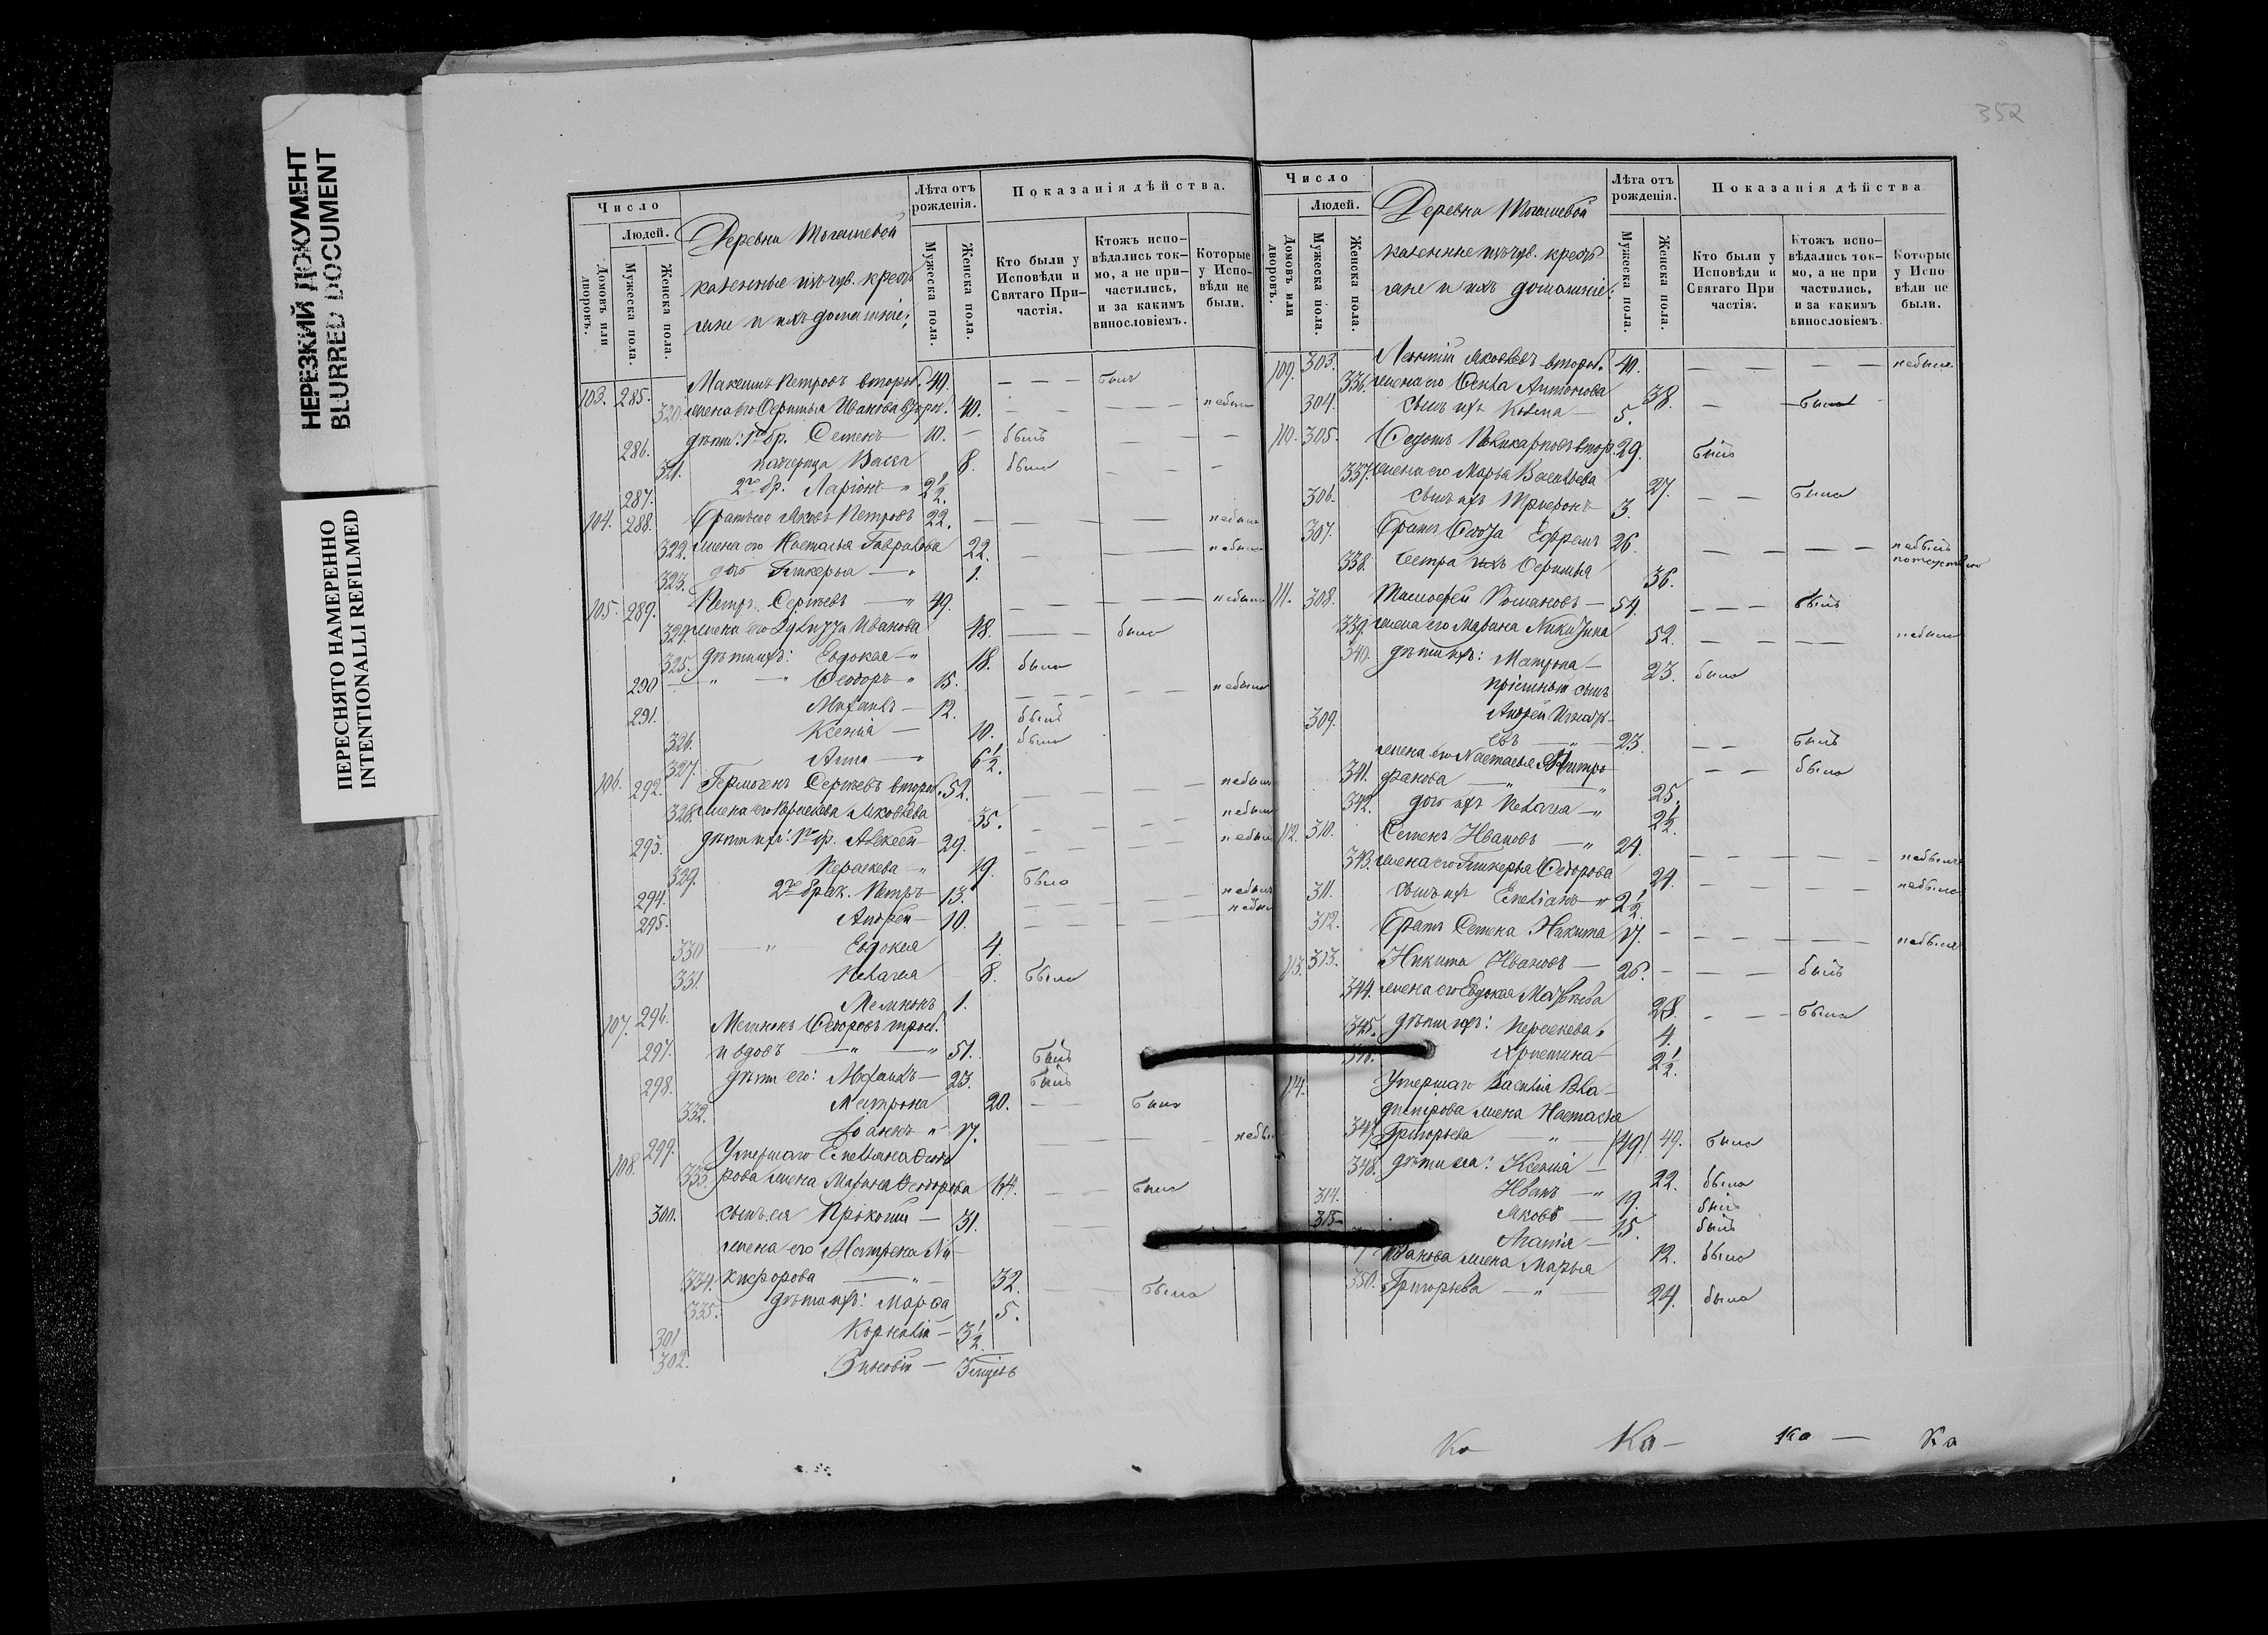 НЕРЕЗКИЙ ДОКУМЕНТ
BLURRED DOCUMENT
ПЕРЕСНЯТО НАМЕРЕННО
INTENTIONALLI REFILMED
352
Число
Людей.
Домовъ или дворовъ.
Мужеска пола.
Женска пола.
Деревни
казенные изъ чув. кресть
яне и ихъ домашніе:
Лѣта отъ рожденія.
Мужеска пола.
Женска пола.
Показанія дѣйства.
Кто были у Исповѣди и Святаго При-частія.
Ктожъ испо-вѣдались ток-мо, а не при-частились, и за какимъ винословіемъ.
Которые у Испо-вѣди не были.
103. 285. Максимъ Петровъ второб. 40. — — — былъ
320. жена его Ѳеоктиста Иванова 40. — — — — небыла
286. дѣти: 1го бр. Семенъ — 10. — былъ — — —
321. падчерица Васса 8. была — — —
287. 2го бр. Ларіонъ — " 2 1/2.
104. 288. Братъ его Яковъ Петровъ 22. — — — — небылъ
322. жена его Настасья Гаврилова 22. — — — — небыла
323. дочь Гликерья — " 1.
105. 289. Петръ Сергѣевъ — " 49. — — — — небылъ
324. жена его Иванова 48. — — — была
325. дѣти ихъ: Евдокея — " 18. была
290 — " — " Ѳеодоръ — " 15. — — — — небылъ
291. Михаилъ — 12. былъ
326. Ксенія — 10. была
327. Анна — " 6 1/2.
106. 292. Гермогенъ Сергѣевъ второб. 52. — — — — небылъ
328. жена его Параскева Яковлева 35. — — — — небыла
293. дѣти ихъ: 1го бр. Алексѣй — 29. — — — — небылъ
329. Параскева — " 19. была
294. 2го брак. Петръ — 13. — — — — небылъ
295. Андрей — 10. — — небылъ
330 — " Евдокея 4.
331. Пелагея 8. была
296. 1.
107. Ѳедоровъ
297. и вдовъ — " — " 51. былъ
298. дѣти его: Михаилъ — 23. былъ
332. Матрона 20. — — была
299. Іоаннъ " 17. — — — —
108. Умершаго Емельяна Ѳеодо
333. рова жена Марина Ѳеодорова 64. — — была
300. сынъ ея Прокопій — 31. — —
жена его Матрена Ни-
334. кифорова — " — 32. — — была
335. дѣти ихъ: Марѳа 5.
301 Корнилій — 3 1/2.
302. Зиновій —
Число
Людей.
Домовъ или дворовъ.
Мужеска пола.
Женска пола.
Деревни
казенные изъ чув. кресть
яне и ихъ домашніе:
Лѣта отъ рожденія.
Мужеска пола.
Женска пола.
Показанія дѣйства
Кто были у Исповѣди и Святаго При частія.
Ктожъ испо-вѣдались ток-мо, а не при частились, и за какимъ винословіемъ.
Которые у Испо вѣди не были.
109. 303. Яковлевъ второб. 40. — — — — небылъ
336. жена его Антонова 38. — была
304. сынъ ихъ Козма — 5.
110. 305. Ѳедотъ Поликарповъ втор. 29. былъ
337. жена его Марья Васильева 27. — — была
306. сынъ ихъ Трифонъ — 3.
307. Братъ Ѳедота Ефремъ 26. — — — — небылъ
338. Сестра ихъ 36.
111. 308. Тимоѳей Романовъ — 54. — — — былъ
339. жена его Марина Никитина 52. — — — небыла
340. дѣти ихъ: Матрона — 23. была
пріемный сынъ
309. Андрей Игнать-
евъ — " — 23. — — былъ
жена его Настасья Митро
341. фанова — " — " 25. — — была
342. дочь ихъ Пелагея — " 2 1/2.
112. 310. Семенъ Ивановъ — " 24. — — — — небылъ
343. жена его Гликерья Ѳедорова 24. — — — — небыла
311. сынъ ихъ Емеліанъ — " 2 1/2.
312. Братъ Семена Никита 17. — — — — небылъ
113. 313. Никита Ивановъ — 26. — — — былъ
344. жена его Евдокея Матвѣева 28. — — — была
345. дѣти ихъ: Параскева " 4.
346. Христина — 2 1/2.
114. Умершаго Василія Вла-
димірова жена Настасья
347. Григорьева — " — (49) 49. была
348. дѣти ея: Ксенія — 22. была
314. Иванъ — " 19. былъ
315. Яковъ — 15. былъ
— 12. была
Иванова жена Марья
350. Григорьева — " — 24. была
Ка Ка — Ка — Ка